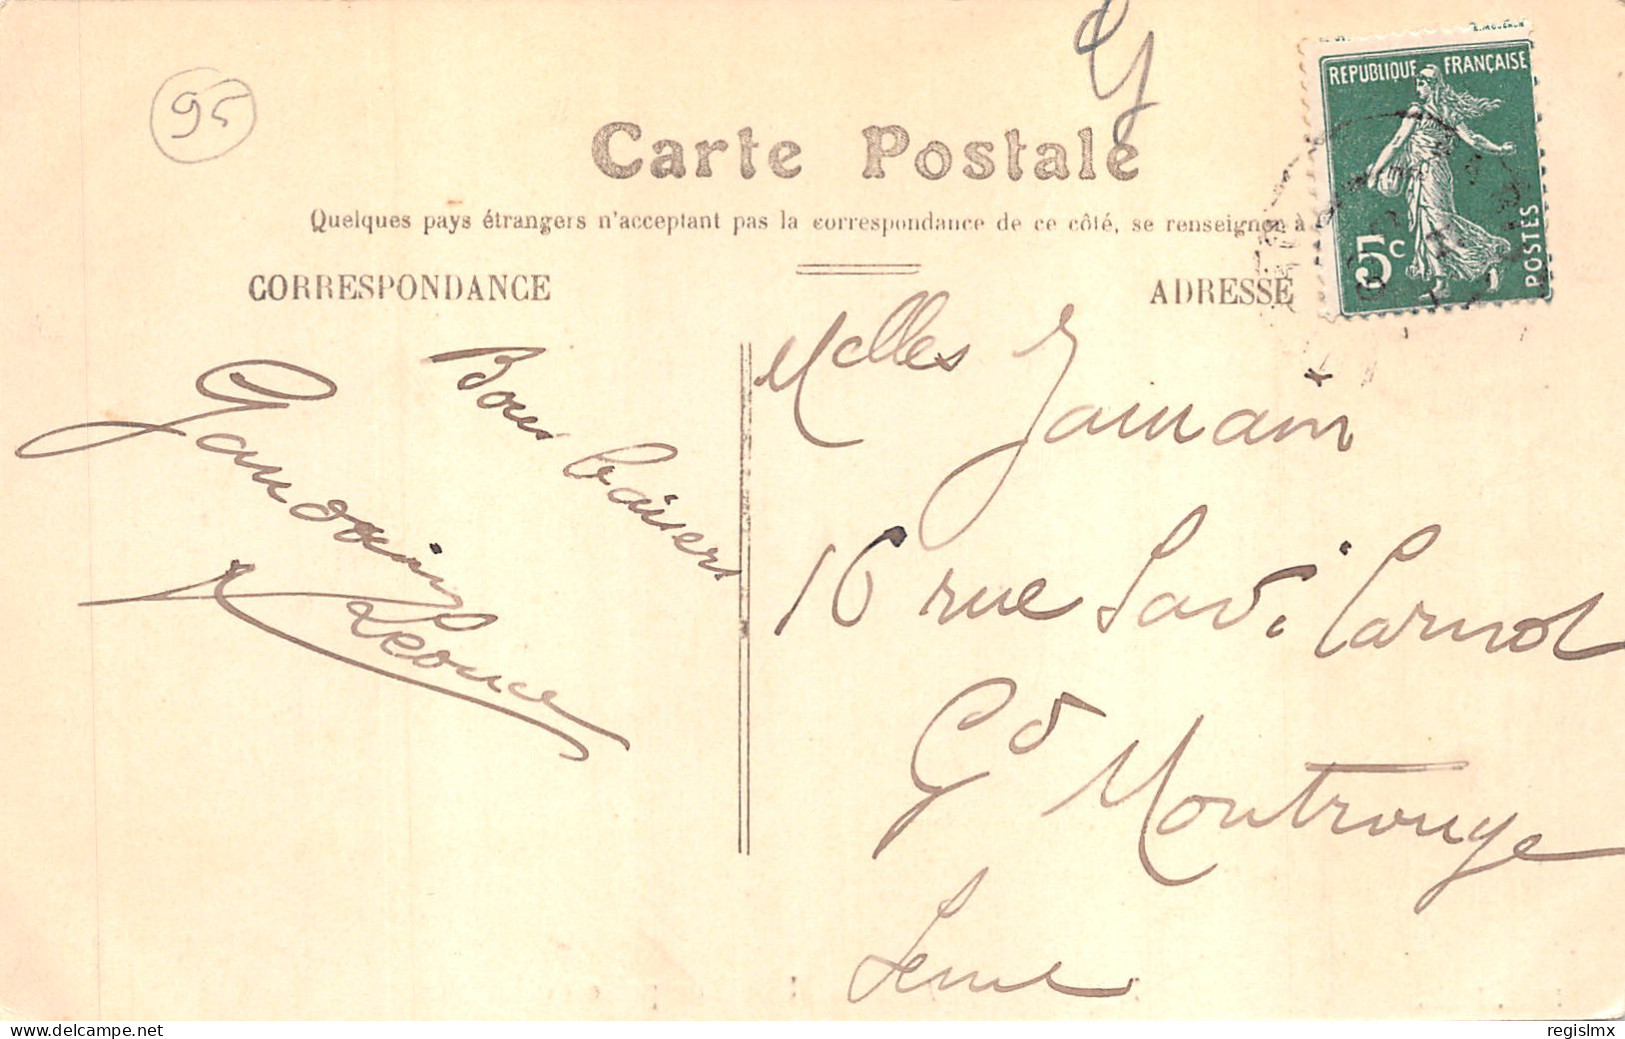 95
Carte Postale
Quelques pays étrangers n'acceptant pas la correspondance de ce côté, se renseigner à
CORRESPONDANCE
ADRESSE
RÉPUBLIQUE FRANÇAISE
5c
POSTES
Bons baisers
Léonce
Melles
16 rue Sadi Carnot
Gd Montrouge
Seine
regislmx